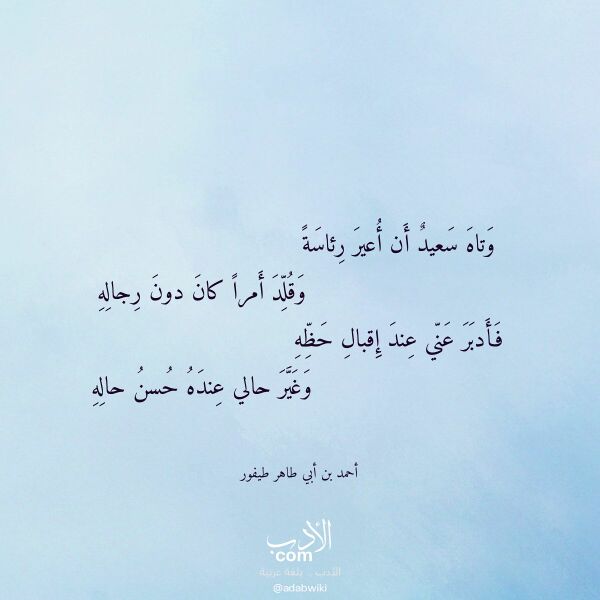 وَتاهَ سَعيدٌ أَن أُعيرَ رِئاسَةً
وَقُلِّدَ أَمراً كانَ دونَ رِجالِهِ
فَأَدبَرَ عَنّي عِندَ إِقبالِ حَظِّهِ
وَغَيَّرَ حالي عِندَهُ حُسنُ حالِهِ
أحمد بن أبي طاهر طيفور
الأدب
com
الأدب .. بلغة عربية
@adabwiki